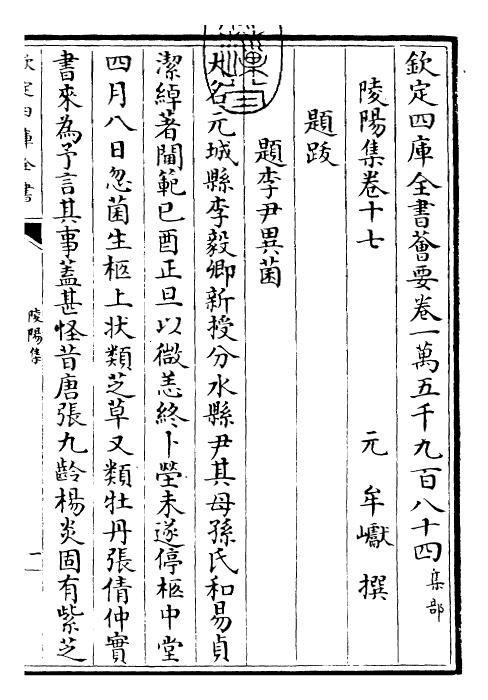 欽定四庫全書薈要卷一萬五千九百八十四集部
陵陽集卷十七
元 牟巘 撰
題跋
題李尹異菌
大名元城縣李毅卿新授分水縣尹其母孫氏和易貞
潔綽著閫範已酉正旦以微恙終卜塋未遂停柩中堂
四月八日忽菌生柩上状類芝草又類牡丹張倩仲實
書來為予言其事蓋甚怪昔唐張九齡楊炎固有紫芝
欽定四庫全書
陵陽集
一